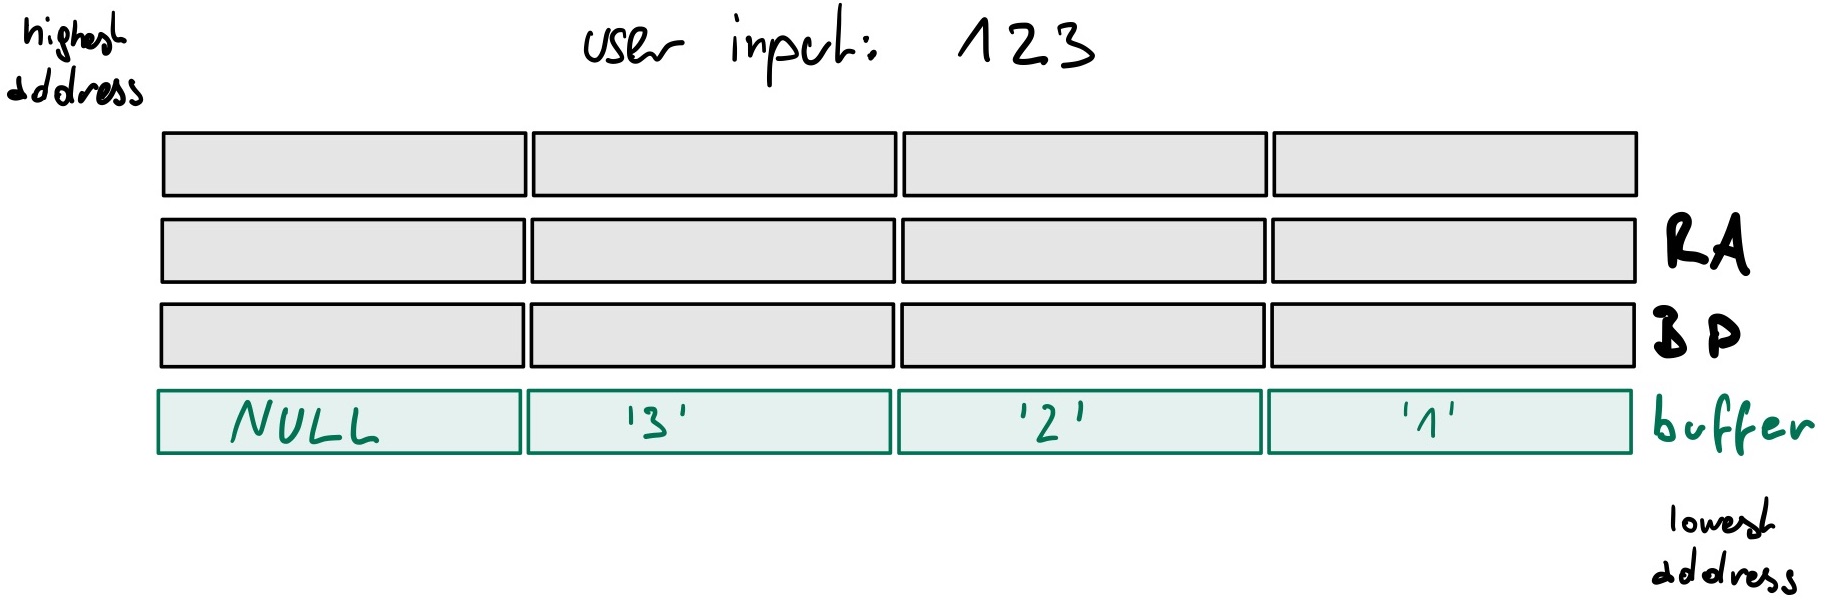 highest
address
user input: 123
RA
BP
NULL '3' '2' '1' buffer
lowest
address